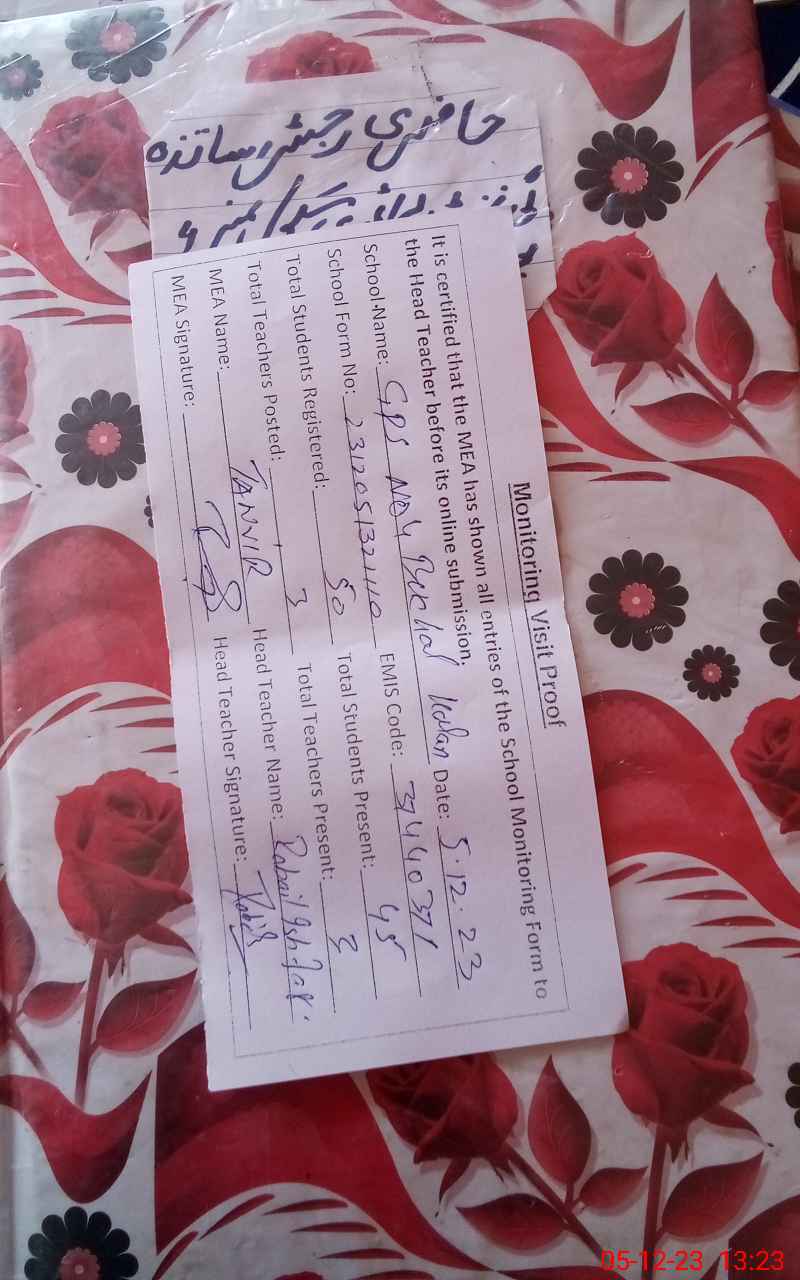 حاضری رجسٹر اساتذہ
Monitoring Visit Proof
It is certified that the MEA has shown all entries of the School Monitoring Form to
the Head Teacher before its online submission.
School Name: GPS No4 Kalan Date: 5.12.23
School Form No: EMIS Code: 37440371
Total Students Registered: 50 Total Students Present: 45
Total Teachers Posted: 3 Total Teachers Present: 3
MEA Name: TANVIR Head Teacher Name:
MEA Signature: Head Teacher Signature:
05-12-23 13:23